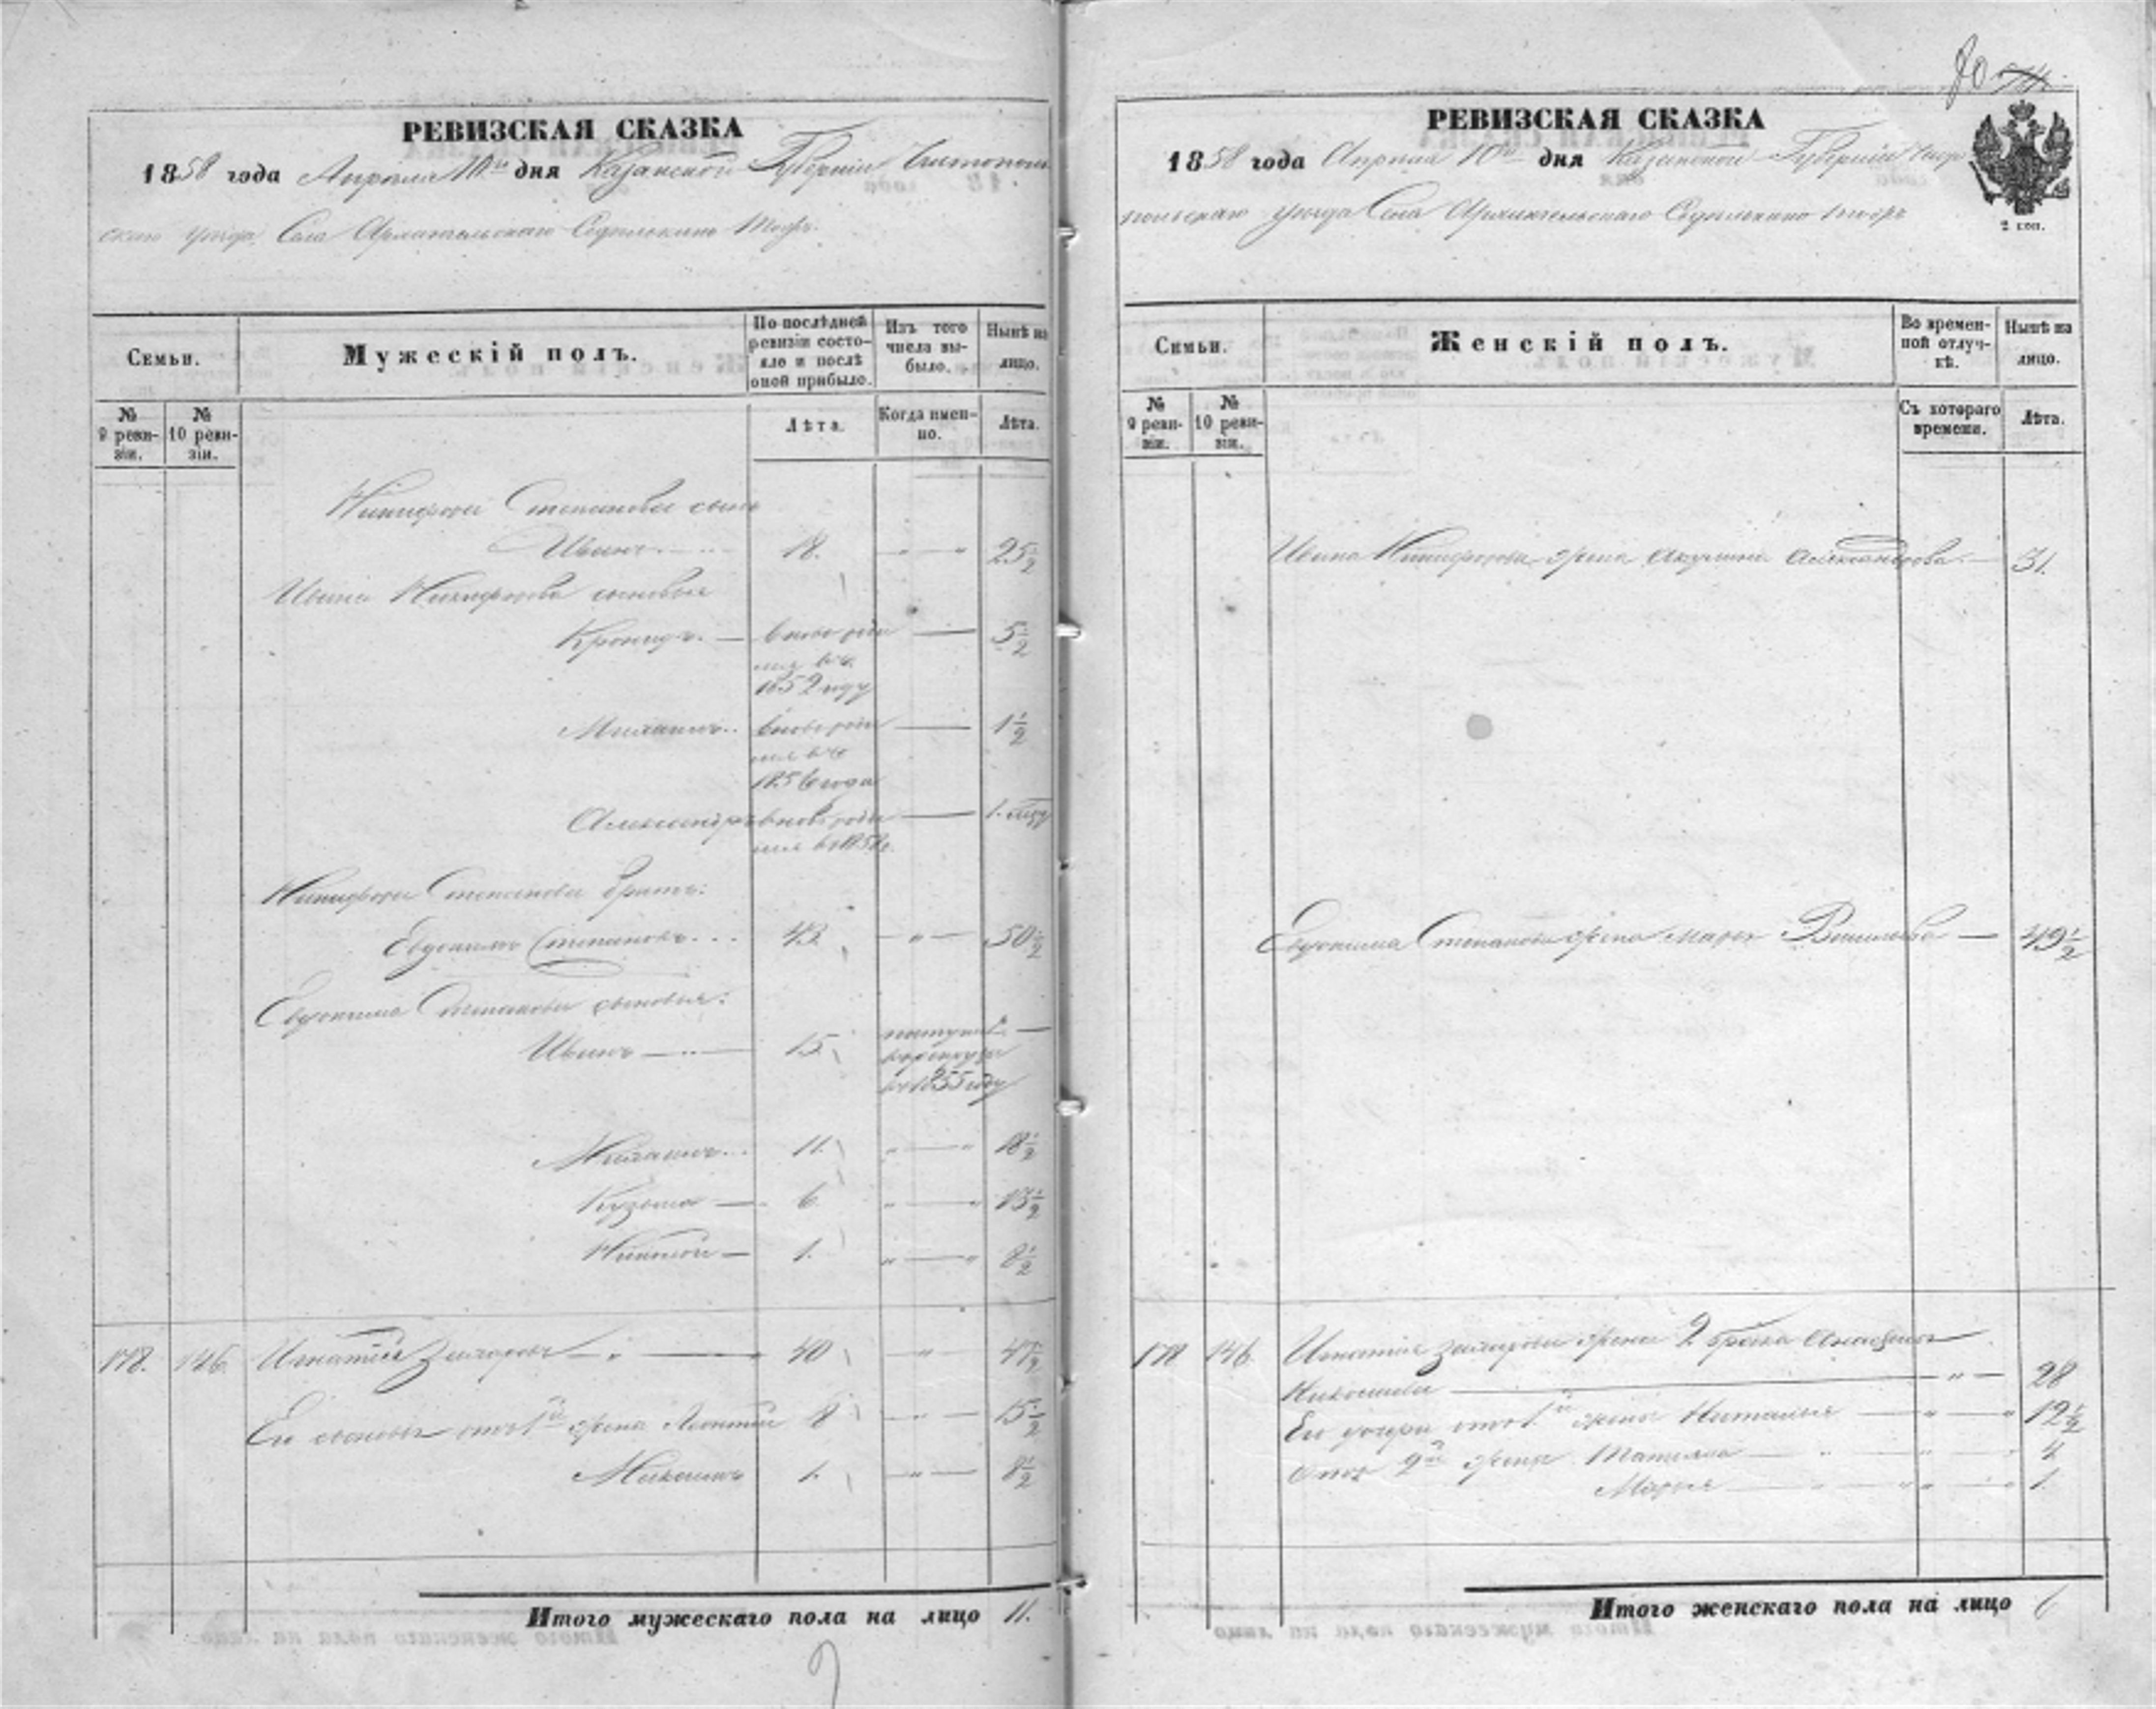 80
РЕВИЗСКАЯ СКАЗКА
1858 года Апреля 10го дня Казанской Губернiи Чистополь
скаго уезда Села Архангельскаго Седелькино тожъ
Семьи.
Мужескiй полъ.
По послѣдней ревизiи состояло и послѣ оной прибыло.
Изъ того числа выбыло.
Нынѣ на лицо.
№ 9 ревизiи.
№ 10 ревизiи.
Лѣта.
Когда именно.
Лѣта.
Никифора Степанова сынъ
Иванъ 18. 25½
Ивана Никифорова сыновья
Кронидъ вново роди 5½
1852 году
Михаилъ вново роди 1½
1856 года
Александръ вново роди 1.
1858
Никифора Степанова братъ:
Евдокимъ Степановъ 43. 50½
Евдокима Степанова сыновья:
Иванъ 15. поступилъ
в рекруты
в 1855 году
Михаилъ 11. 18½
Кузьма 6 13½
Николай 1. 8½
178. 146. Игнатiй Захаровъ 40 47½
Его сыновья отъ 1й жены Леонтiй 8 15½
1. 8½
Итого мужескаго пола на лицо 11.
РЕВИЗСКАЯ СКАЗКА
1858 года Апреля 10го дня Казанской Губернiи Чисто
польскаго уезда Села Архангельскаго Седелькино тожъ
2 коп.
Семьи.
Женскiй полъ.
Во временной отлучкѣ.
Нынѣ на лицо.
№ 9 ревизiи.
№ 10 ревизiи.
Съ котораго времени.
Лѣта.
Ивана Никифорова жена Акулина Александрова 31.
Евдокима Степанова жена Марья Васильева 49½
178 146. Игнатiя Захарова жена 2 брака
Николаева 28
Его дочери отъ 1й жены Наталья 12½
Отъ 2й жены Татьяна 4
Марья 1.
Итого женскаго пола на лицо 6